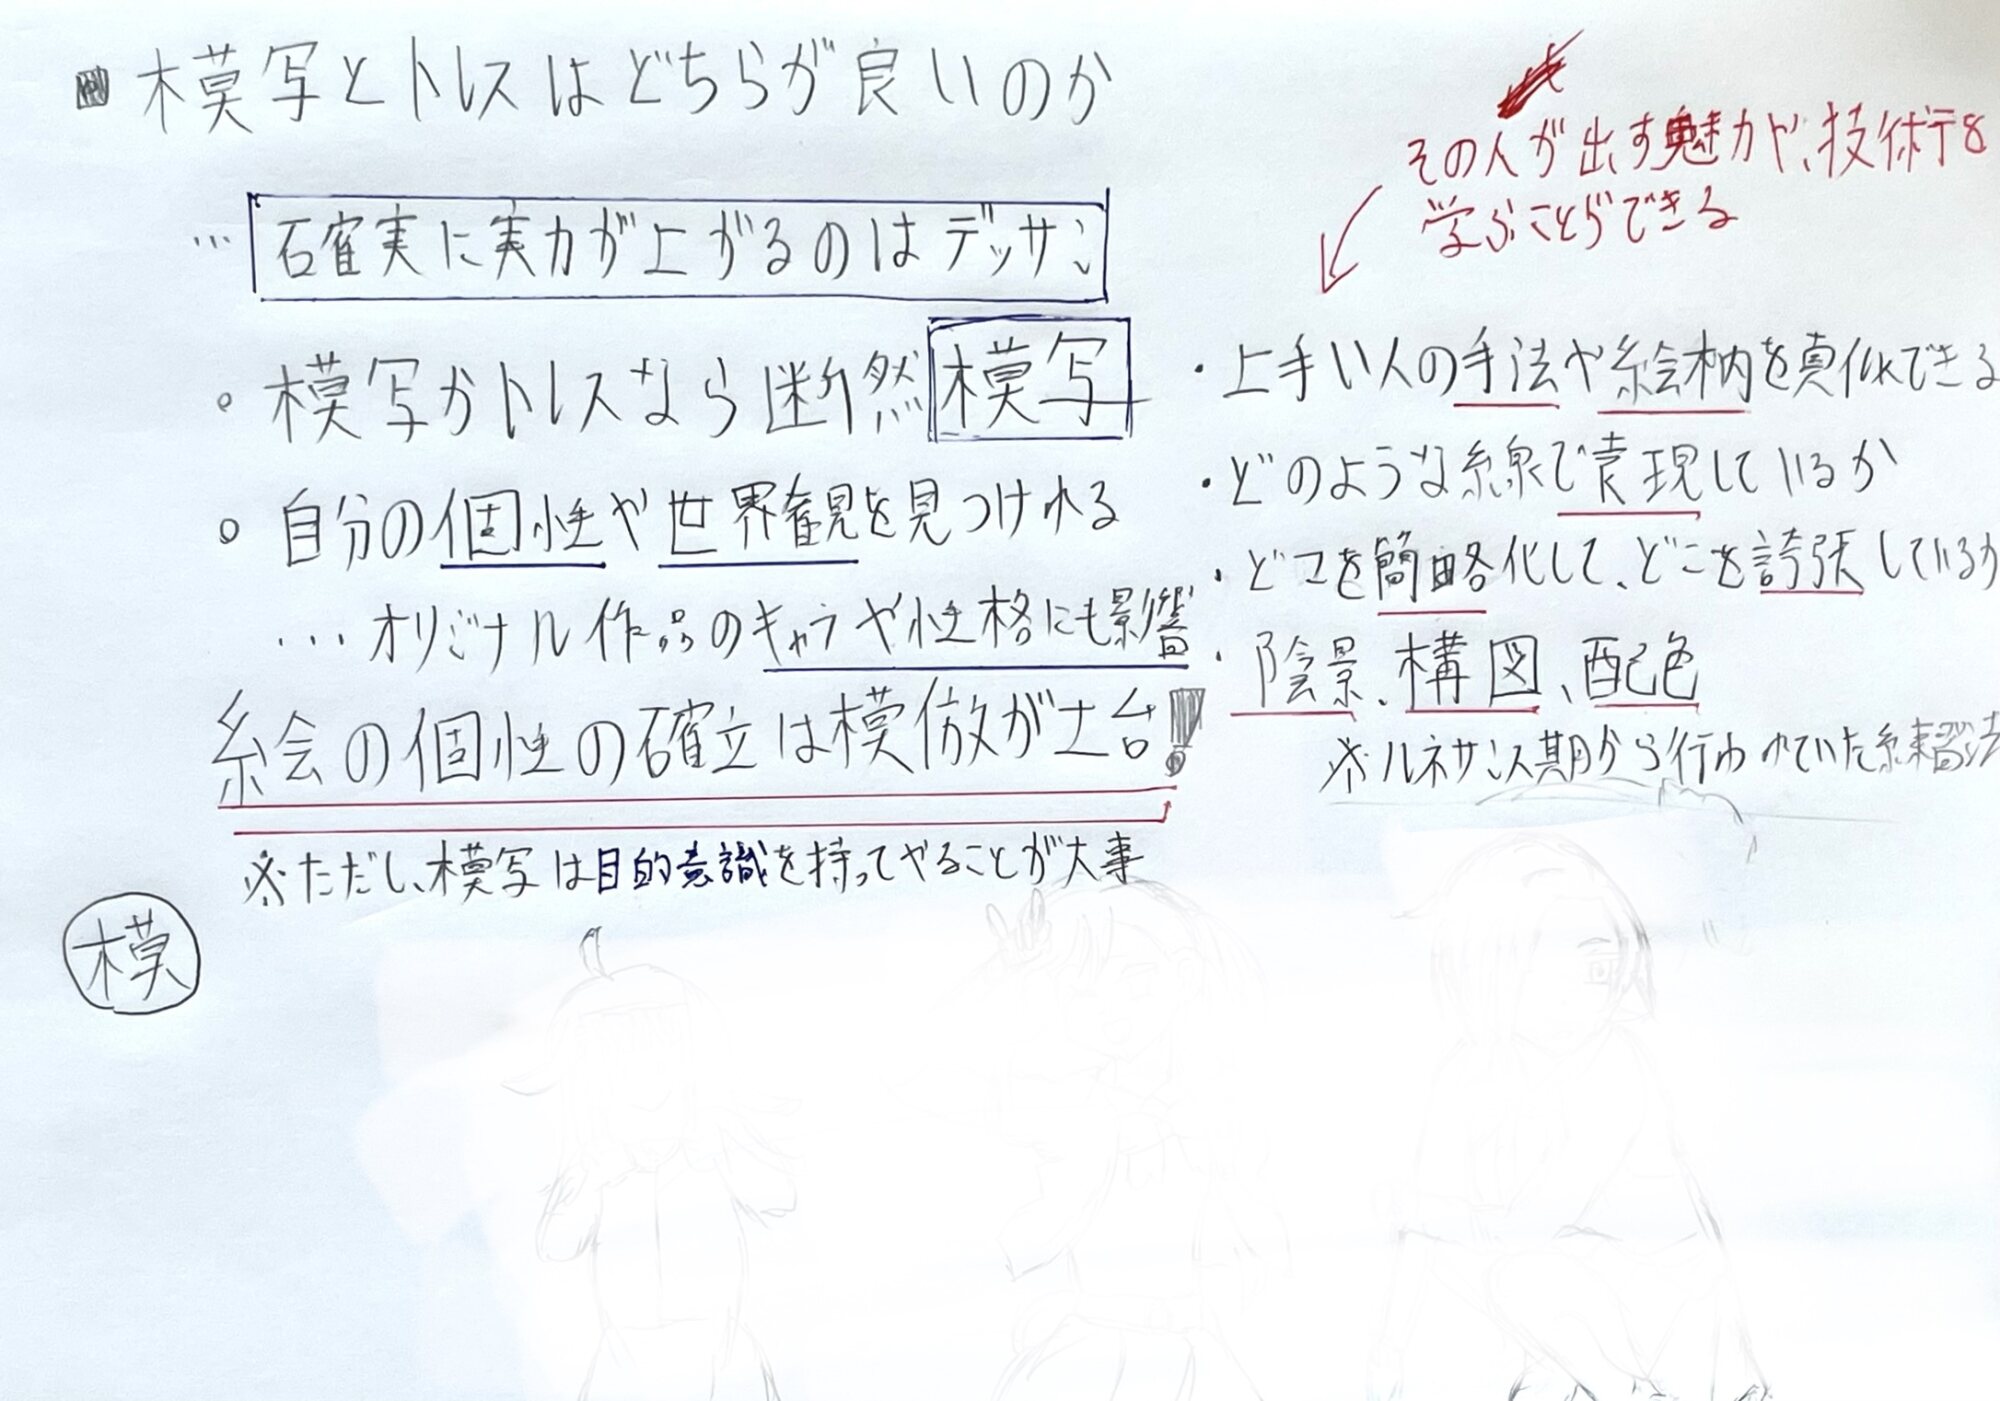 模写とトレスはどちらが良いのか
… 確実に実力が上がるのはデッサン
。模写かトレスなら断然模写
。自分の個性や世界観を見つけれる
…オリジナル作品のキャラや性格にも影響
絵の個性の確立は模倣が土台!
※ただし、模写は目的意識を持ってやることが大事
模
その人が出す魅力や、技術
学ぶことができる
・上手い人の手法や絵柄を真似できる
・どのような線で表現しているか
・どこを簡略化して、どこを誇張しているか
・陰景、構図、配色
※ルネサンス期から行われていた練習法